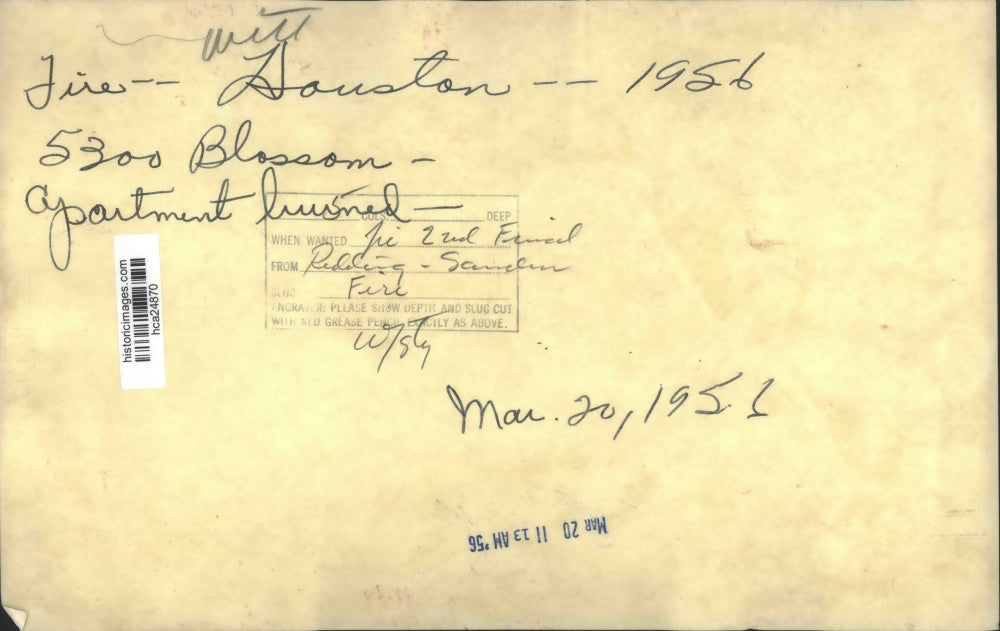 Witt
Fire -- Houston -- 1956
5300 Blossom -
apartment burned -
COLS. DEEP
WHEN WANTED 2nd Final
FROM Redding -
SLUG Fire
ENGRAVER: PLEASE SHOW DEPTH AND SLUG CUT
WITH RED GREASE PENCIL EXACTLY AS ABOVE.
W/sty
historicimages.com
hca24870
Mar. 20, 1956
MAR 20 11 13 AM '56